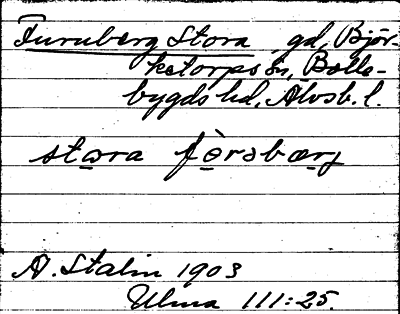 Furuberg Stora gd, Björ-
ketorps sn, Bolle-
bygds hd, Älvsb. l.
stora fòrsbærj
A. Stalin 1903
Ulma 111:25.